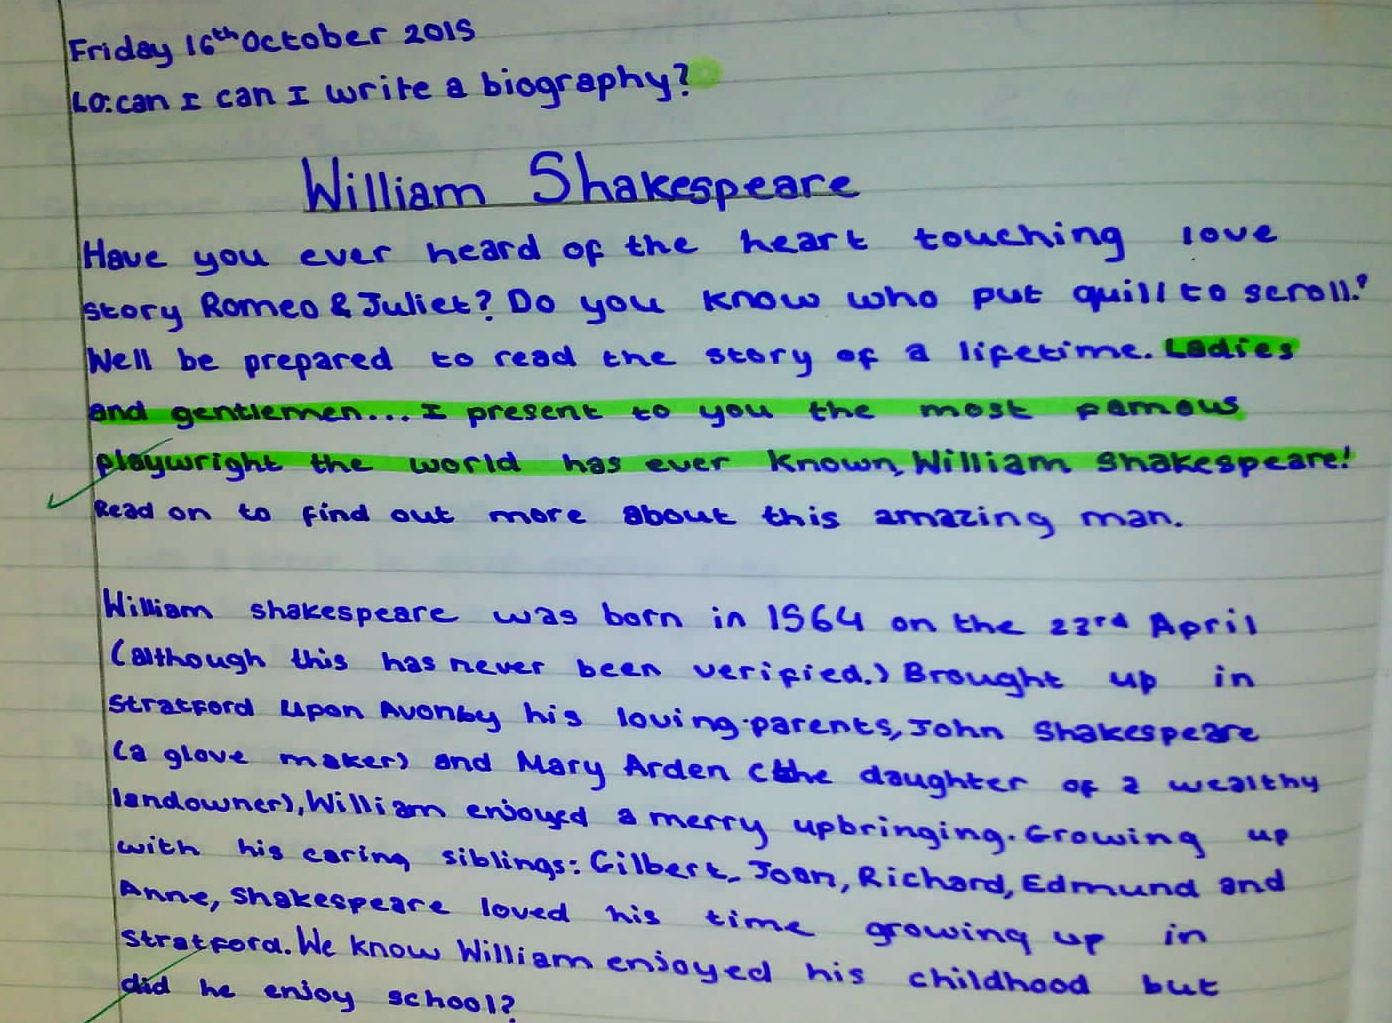 Friday 16th October 2015
LO: can I can I write a biography?
William Shakespeare
Have you ever heard of the heart touching love
story Romeo & Juliet? Do you know who put quill to scroll?
Well be prepared to read the story of a lifetime. Ladies
and gentlemen... I present to you the most famous
playwright the world has ever known, William Shakespeare!
Read on to find out more about this amazing man.
William shakespeare was born in 1564 on the 23rd April
(although this has never been verified.) Brought up in
Stratford Upon Avon by his loving parents, John Shakespeare
(a glove maker) and Mary Arden (the daughter of a wealthy
landowner), William enjoyed a merry upbringing. Growing up
with his caring siblings: Gilbert, Joan, Richard, Edmund and
Anne, Shakespeare loved his time growing up in
Stratford. We know William enjoyed his childhood but
did he enjoy school?